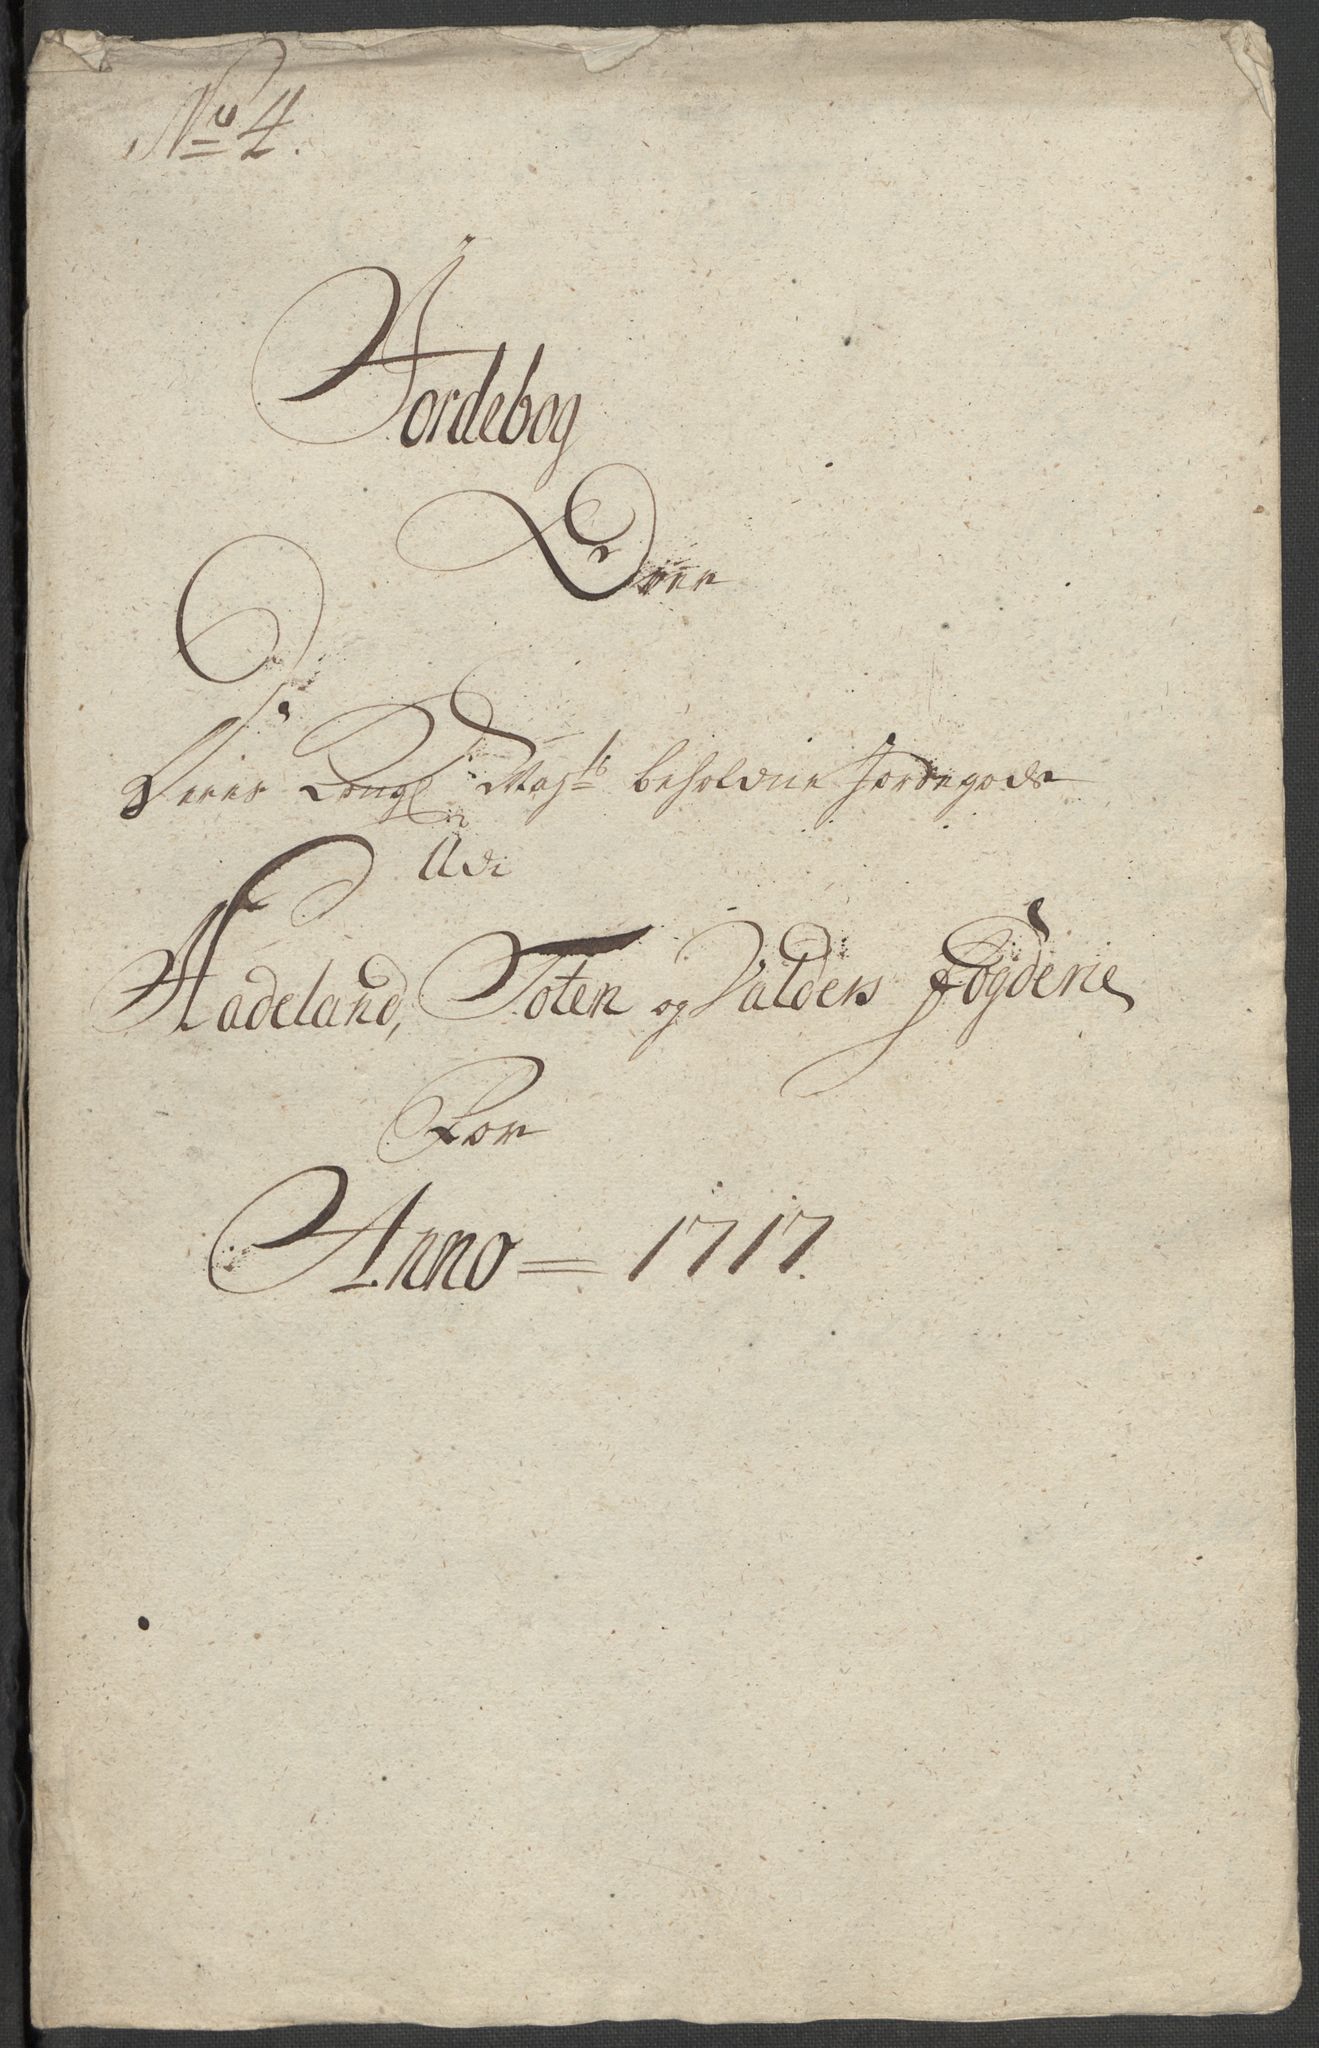 No 4.
Jordebog
Over
Deres Kongl Mayts beholdne Jordegods
Udi
Hadeland, Toten og Valders fogderie
For
Anno = 1717.